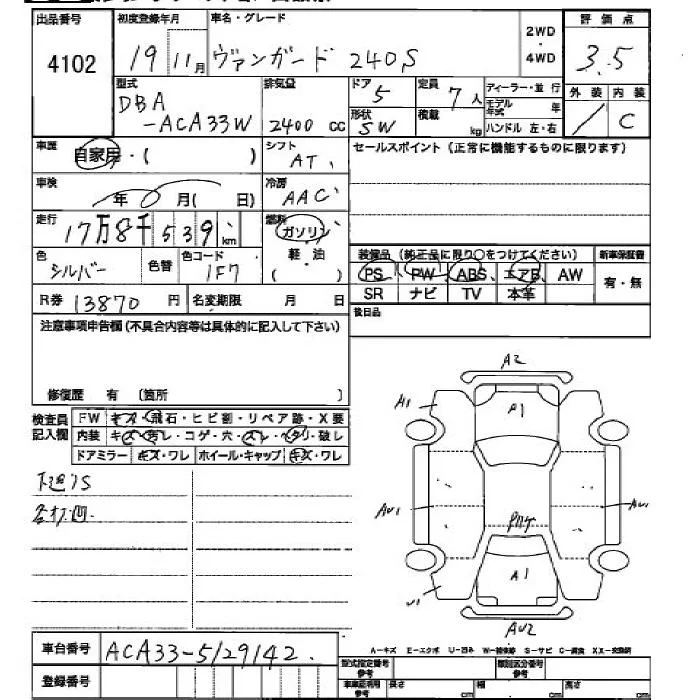 出品番号 初度登録年月 車名・グレード 2WD・4WD 評価点
4102 19 11月 ヴァンガード 240S 3.5
型式 排気量 ドア 定員 ディーラー・並行 外装 内装
DBA 5 7人 モデル年式 年
-ACA33W 2400 CC 形状 SW 積載 kg ハンドル 左・右 / C
車歴 自家用・( ) シフト AT セールスポイント(正常に機能するものに限ります)
車検 年 月( 日) 冷房 AAC
走行 17万8千539 km 燃料 ガソリン
軽・油
( )
色 シルバー 色替 色コード 1F7
装備品(純正品に限り○をつけてください) 新車保証書
PS PW ABS エアB AW 有・無
SR ナビ TV 本革
R券 13870 円 名変期限 月 日
後日品
注意事項申告欄(不具合内容等は具体的に記入して下さい)
修復歴 有 〔箇所 〕
検査員記入欄 FW キズ・飛石・ヒビ割・リペア跡・X要
内装 キズ・汚れ・コゲ・穴・スレ・ヘタリ・破レ
ドアミラー キズ・ワレ ホイール・キャップ キズ・ワレ
下廻りS
A2
A1
A1
AU1
AU1
A1
U1
AU2
A-キズ E-エクボ U-凹み W-補修跡 S-サビ C-腐食 XX-交換済
車台番号 ACA33-5129142
登録番号
型式指定番号 参考 類別区分番号 参考
車車証明用 参考 長さ cm 幅 cm 高さ cm